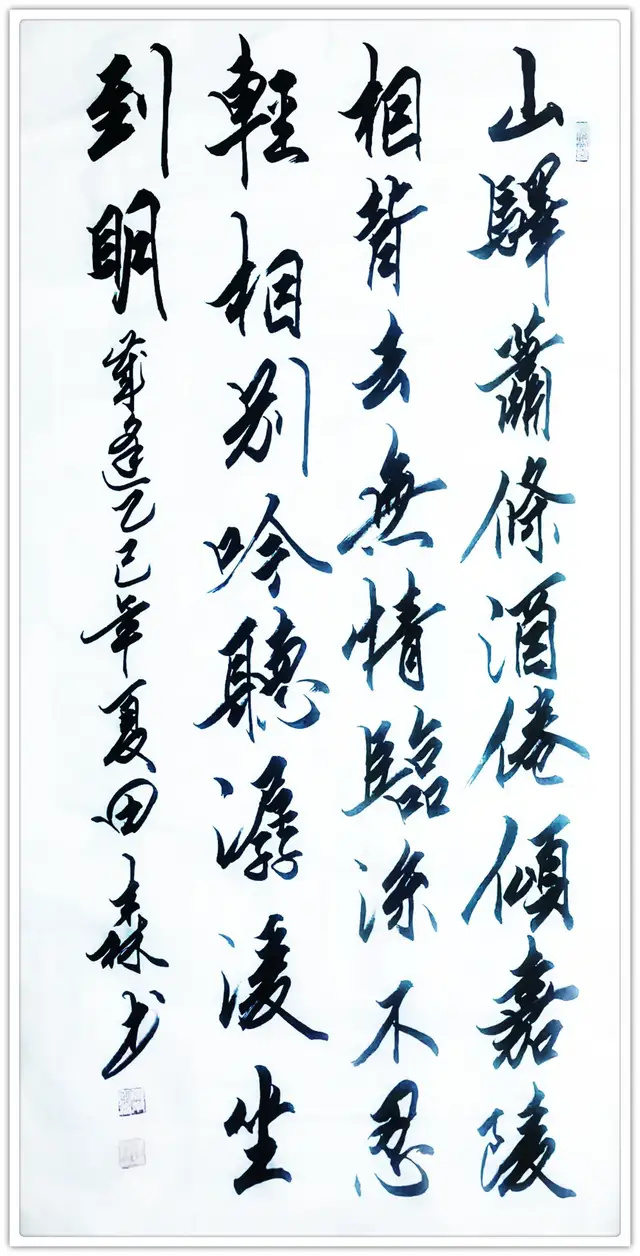 山驛蕭條酒倦傾嘉陵
相背去無情臨流不忍
輕相別吟聽潺湲坐
到明 歲逢乙巳年夏田森书